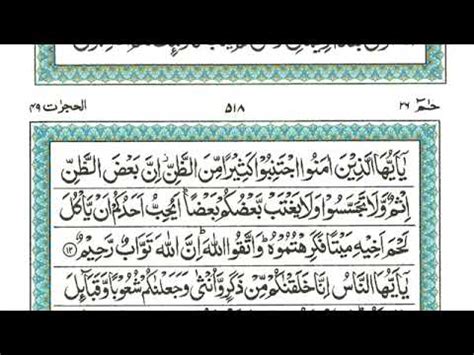 حٰمٓ ۲۶ ۵۱۸ الحجرات ۴۹
يٰۤاَيُّهَا الَّذِيۡنَ اٰمَنُوا اجۡتَنِبُوۡا كَثِيۡرًا مِّنَ الظَّنِّ اِنَّ بَعۡضَ الظَّنِّ
اِثۡمٌ وَّلَا تَجَسَّسُوۡا وَلَا يَغۡتَبۡ بَّعۡضُكُمۡ بَعۡضًا ؕ اَيُحِبُّ اَحَدُكُمۡ اَنۡ يَّاۡكُلَ
لَحۡمَ اَخِيۡهِ مَيۡتًا فَكَرِهۡتُمُوۡهُ ؕ وَاتَّقُوا اللّٰهَ ؕ اِنَّ اللّٰهَ تَوَّابٌ رَّحِيۡمٌ ﴿۱۲﴾
يٰۤاَيُّهَا النَّاسُ اِنَّا خَلَقۡنٰكُمۡ مِّنۡ ذَكَرٍ وَّاُنۡثٰى وَجَعَلۡنٰكُمۡ شُعُوۡبًا وَّقَبَآئِلَ